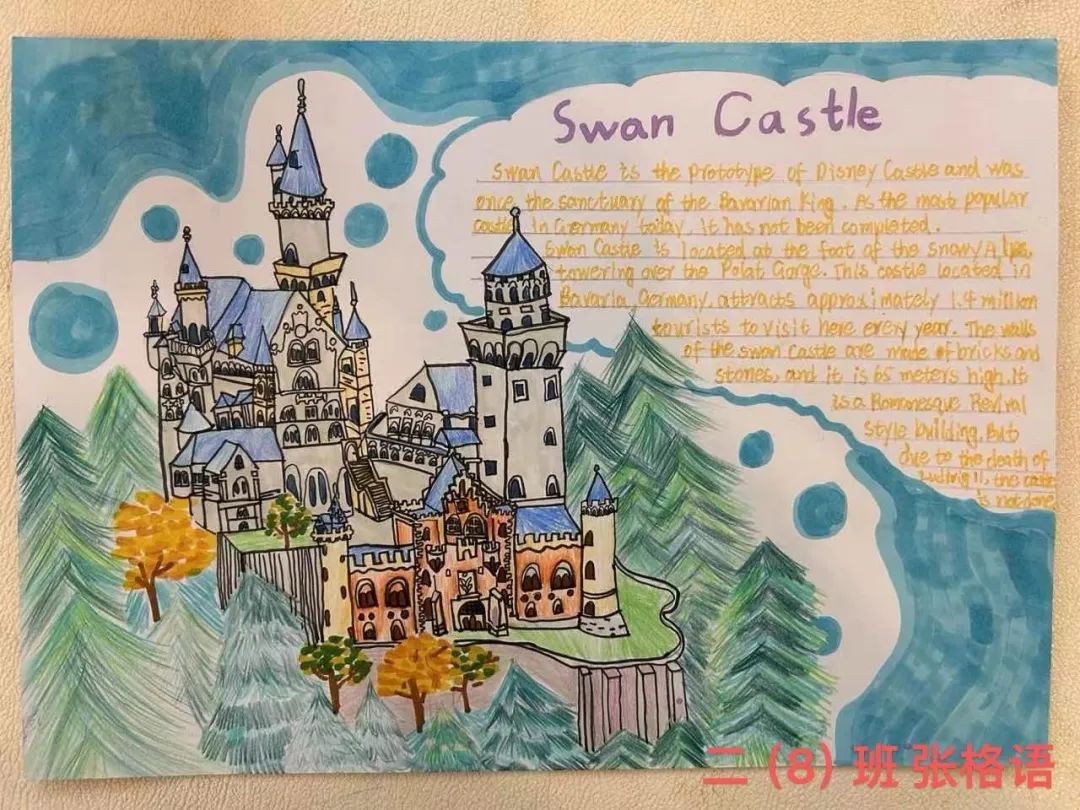 Swan Castle
Swan Castle is the prototype of Disney Castle and was
once the sanctuary of the Bavarian King. As the most popular
castle in Germany today, it has not been completed.
Swan Castle is located at the foot of the snowy Alps,
towering over the Polat Gorge. This castle located in
Bavaria, Germany, attracts approximately 1.4 million
tourists to visit here every year. The walls
of the swan castle are made of bricks and
stones, and it is 65 meters high. It
is a Romanesque Revival
style building. But
due to the death of
II, the castle
is not done
二（8）班 张格语